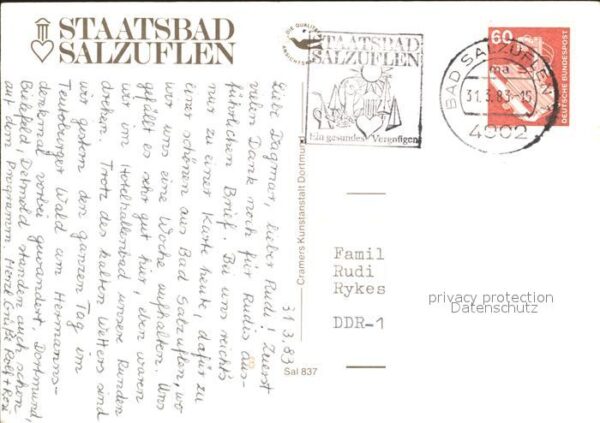 STAATSBAD
SALZUFLEN
31.3.83
Liebe Dagmar, lieber Rudi! Zuerst
vielen Dank noch für Rudis aus-
führlichen Brief. Bei uns reicht's
nur zu einer Karte heute, dafür zu
einer schönen aus Bad Salzuflen, wo
wir uns eine Woche aufhalten. Uns
gefällt es sehr gut hier, eben waren
wir im Hotelhallenbad unsere Runden
drehen. Trotz des kalten Wetters sind
wir gestern den ganzen Tag im
Teutoburger Wald am Hermanns-
denkmal vorbei gewandert. Dortmund,
Bielefeld, Detmold standen auch schon
auf dem Programm. Herzl. Grüße Rolf + Rosi
Cramers Kunstanstalt Dortmund
Sal 837
DIE QUALITÄTS
ANSICHTS
STAATSBAD
SALZUFLEN
Ein gesundes Vergnügen
BAD SALZUFLEN 1
ma
31.3.83-15
4902
60
DEUTSCHE BUNDESPOST
Famil
Rudi
Rykes
DDR-1
privacy protection
Datenschutz